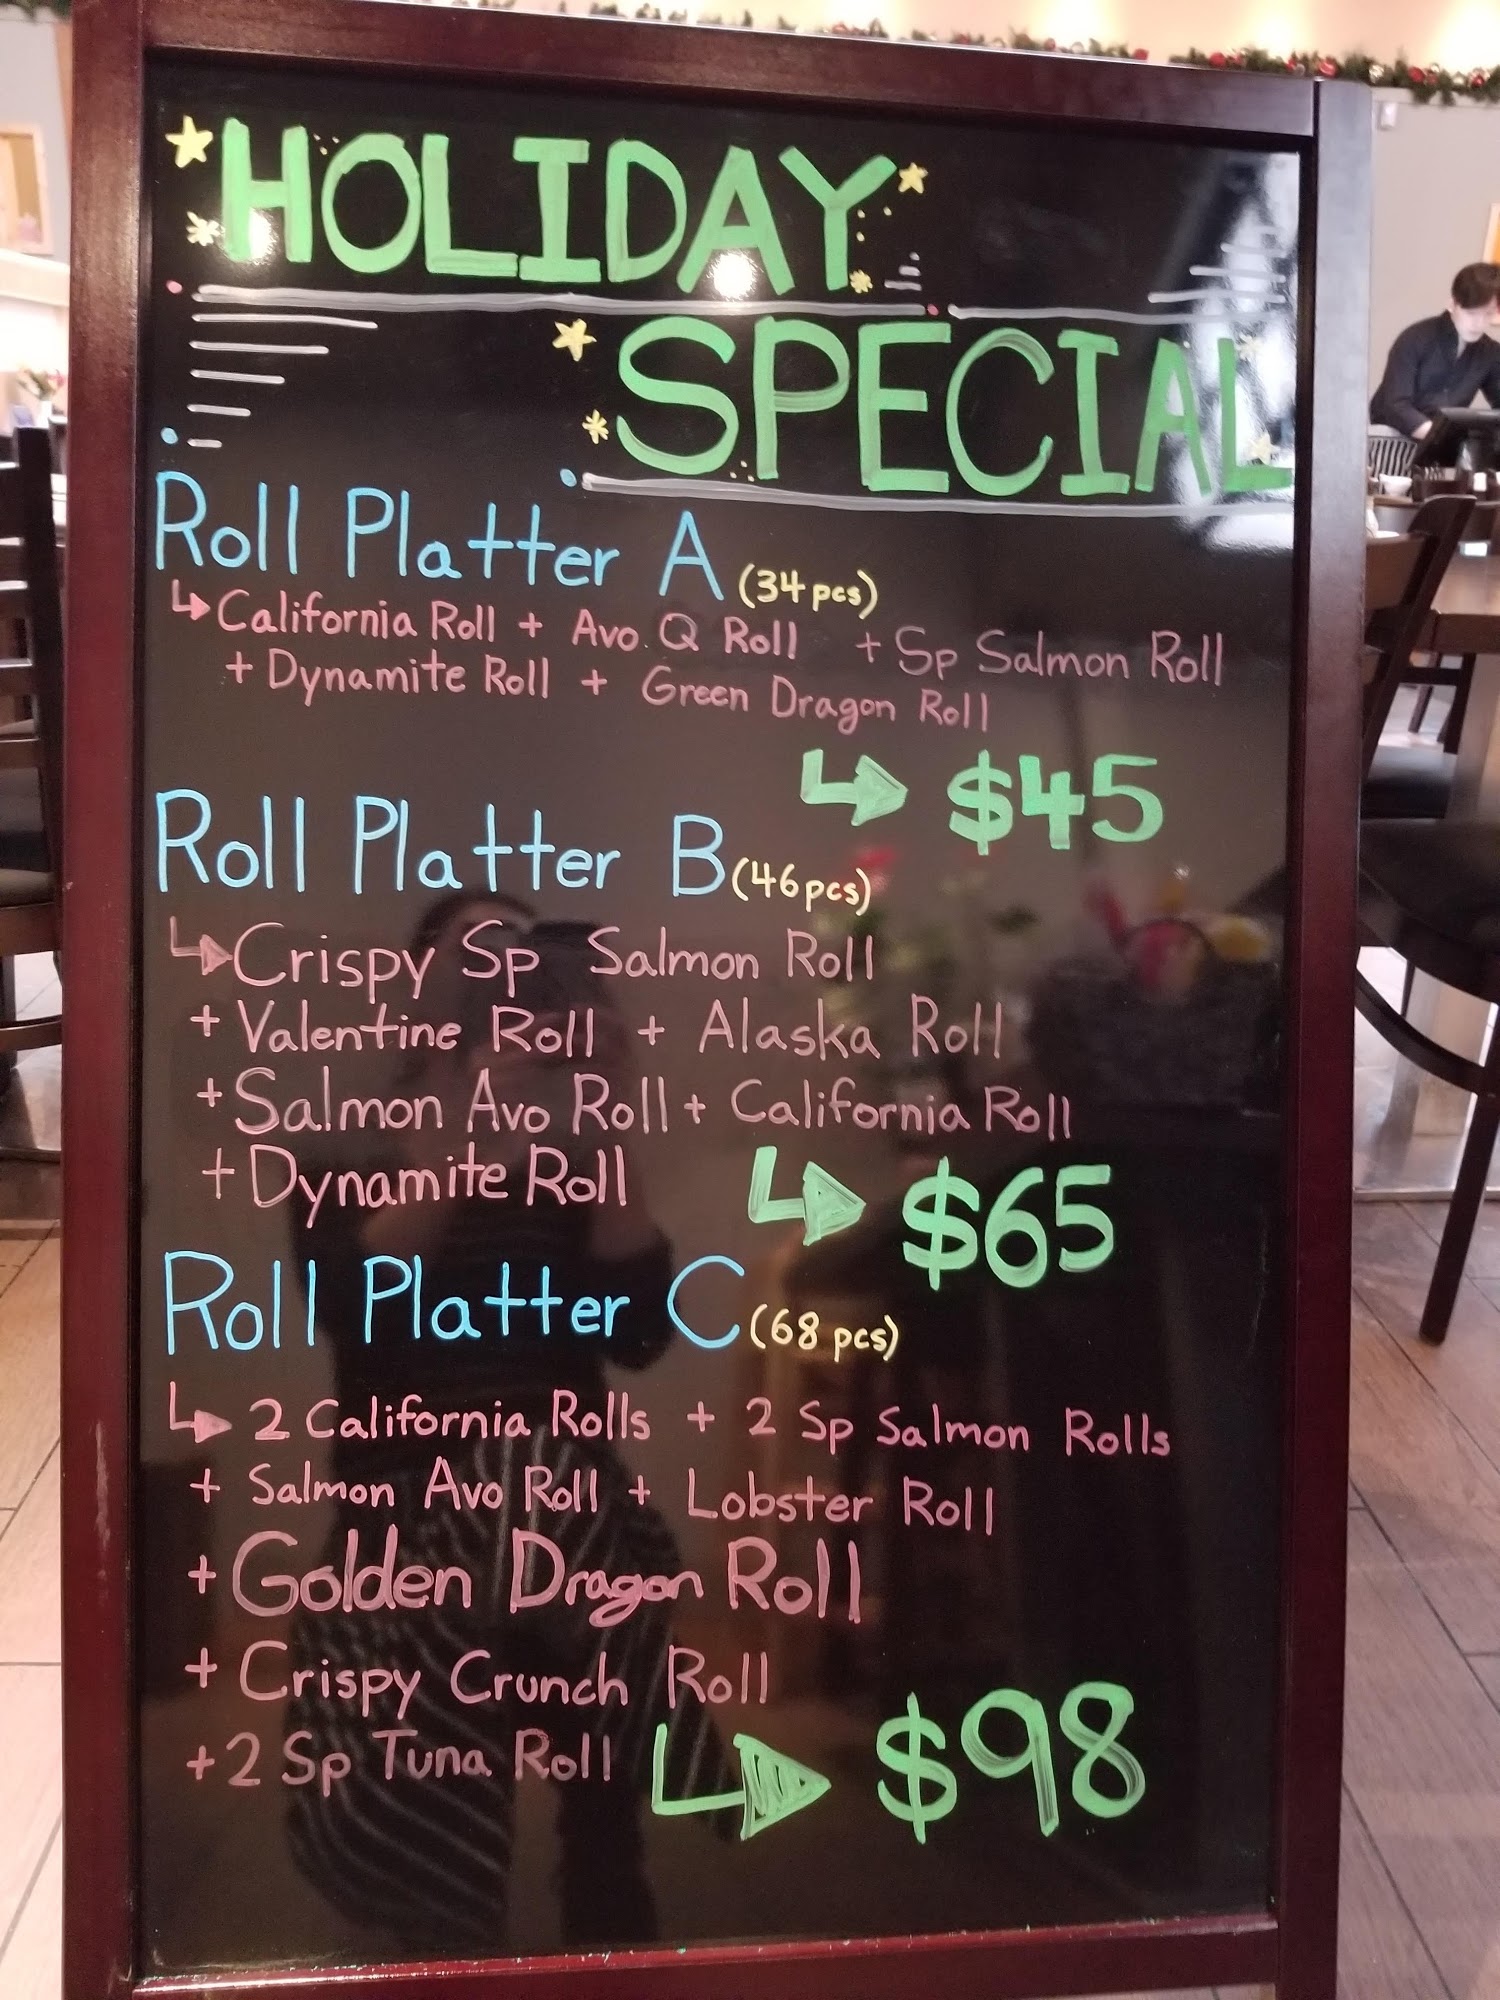 HOLIDAY
SPECIAL
Roll Platter A (34 pcs)
California Roll + Avo. Q Roll + Sp Salmon Roll
+ Dynamite Roll + Green Dragon Roll
$45
Roll Platter B (46 pcs)
Crispy Sp Salmon Roll
+ Valentine Roll + Alaska Roll
+ Salmon Avo Roll + California Roll
+ Dynamite Roll
$65
Roll Platter C (68 pcs)
2 California Rolls + 2 Sp Salmon Rolls
+ Salmon Avo Roll + Lobster Roll
+ Golden Dragon Roll
+ Crispy Crunch Roll
+ 2 Sp Tuna Roll
$98